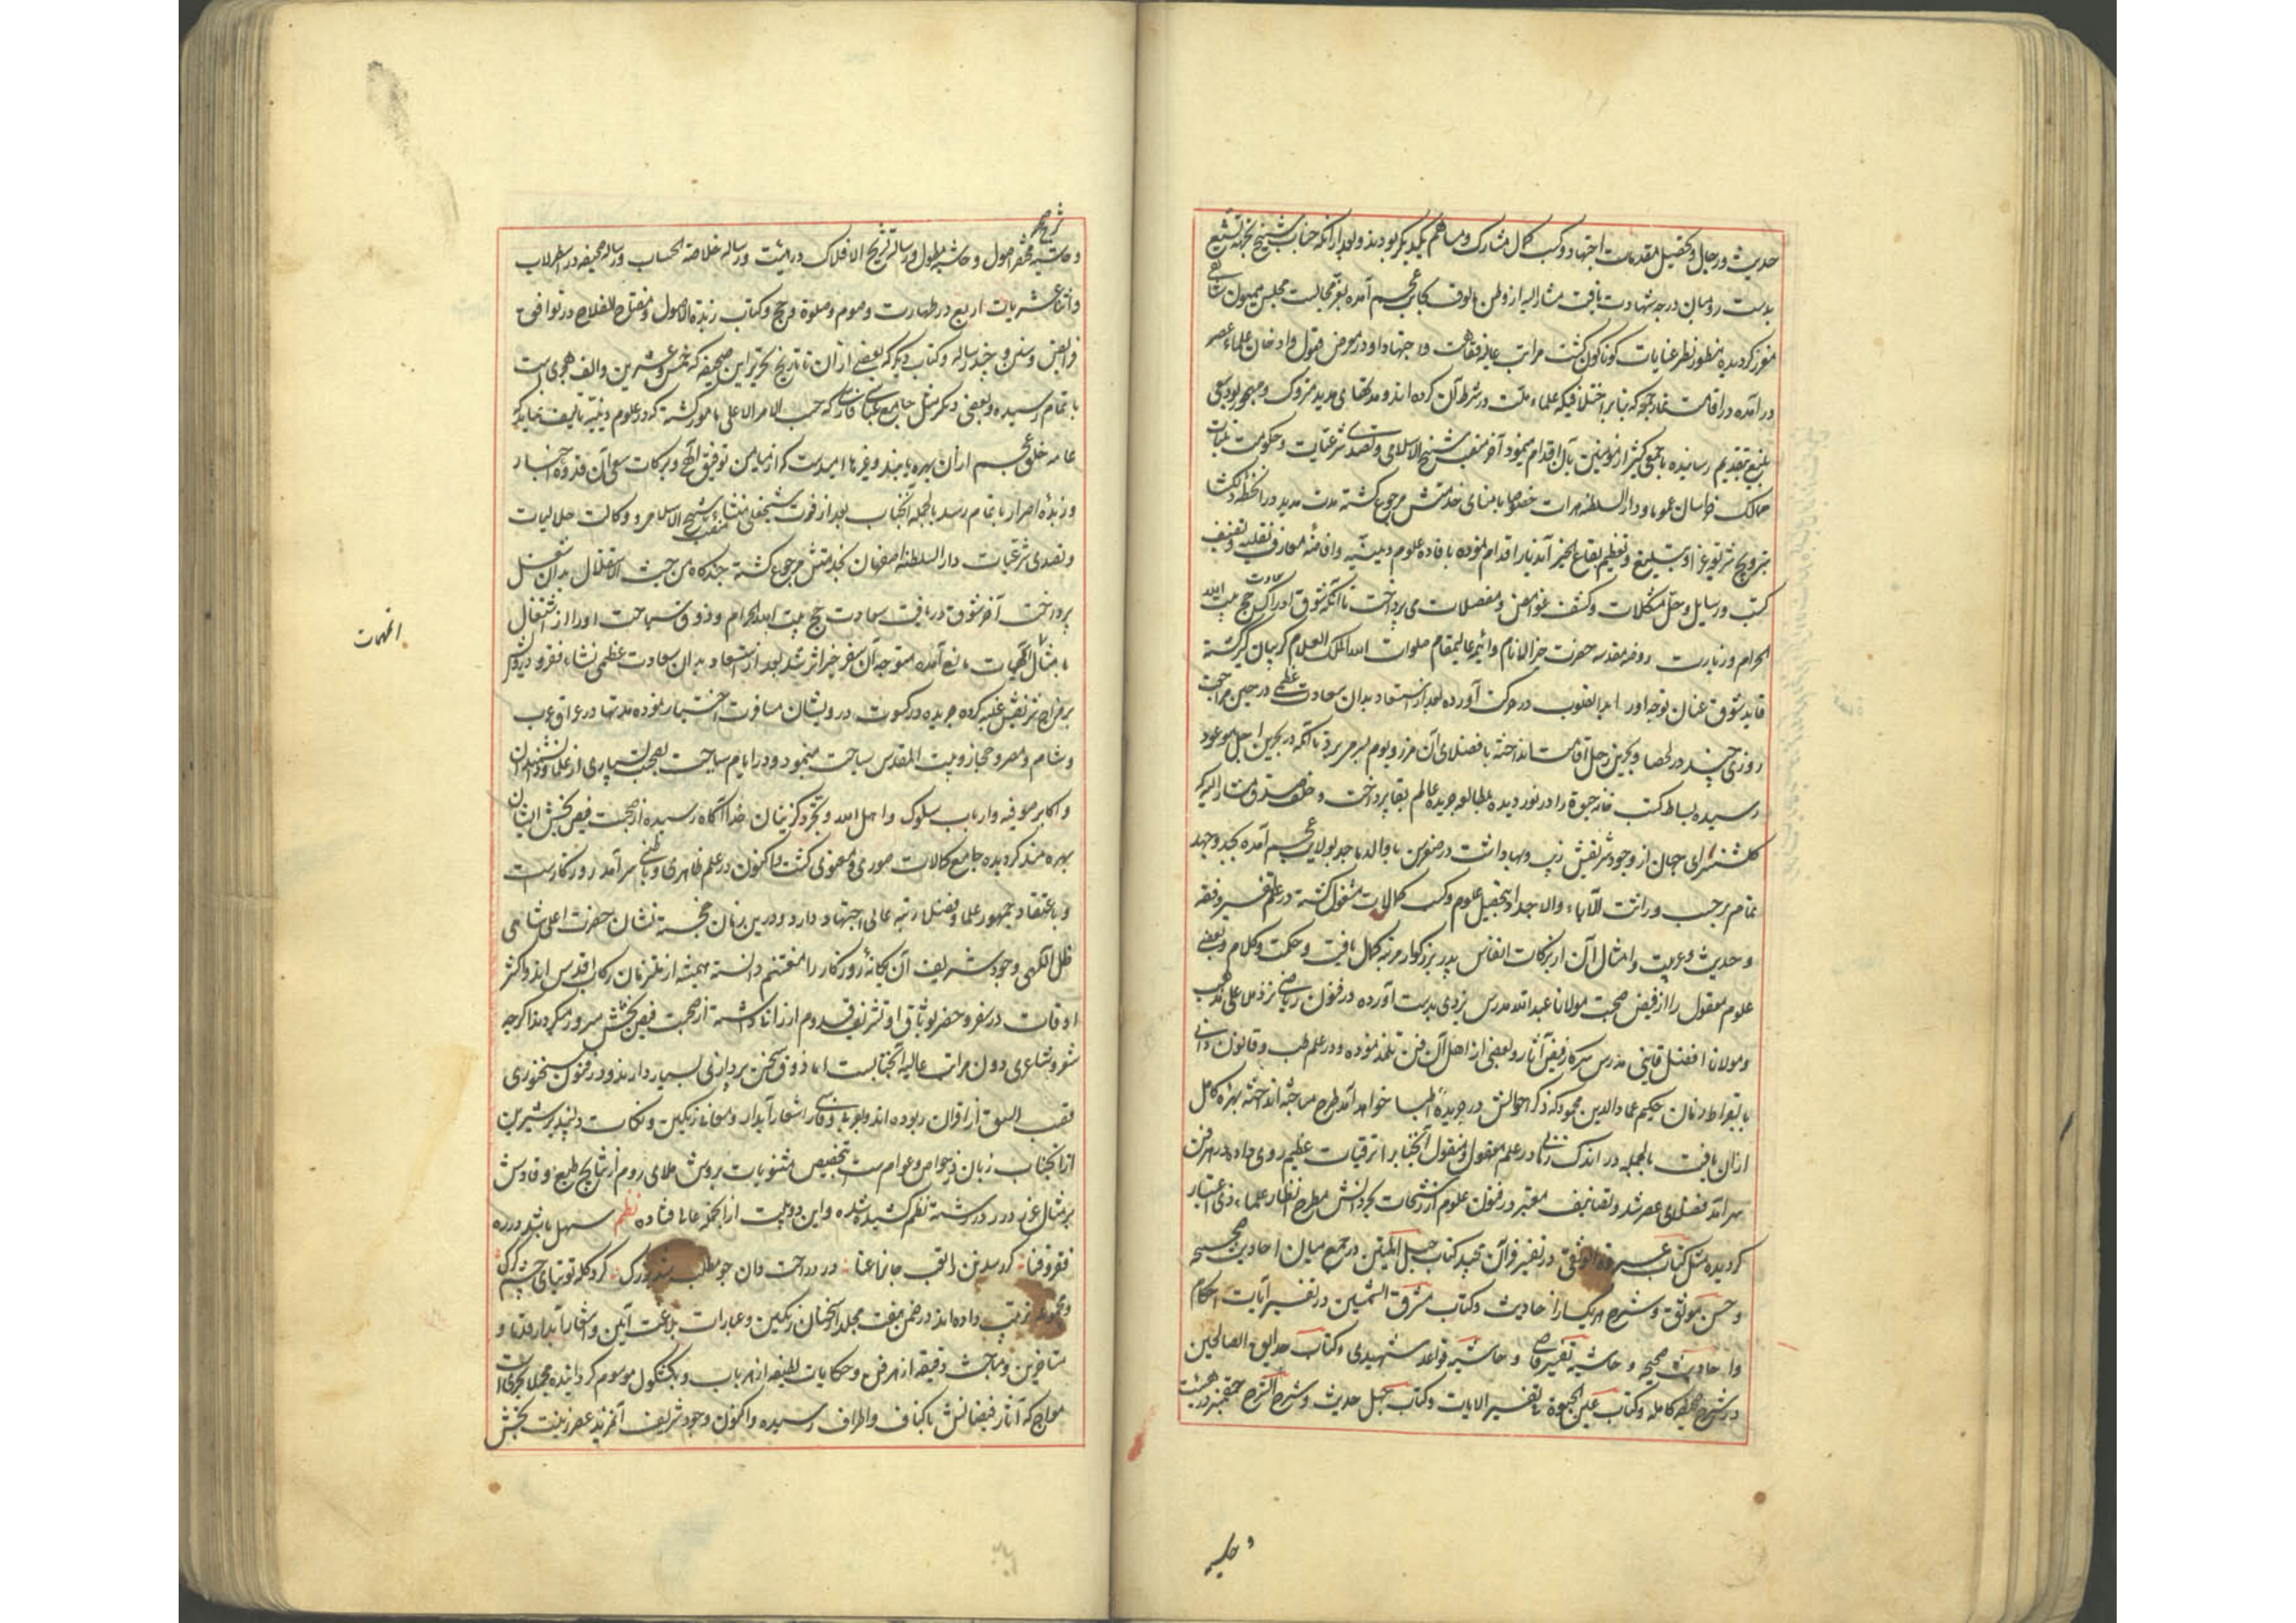 حدیث و رجال و تحصیل مقدمات اجتهاد و کسب کمال مشارک و مساهم یکدیگر بودند و بعد از آنکه جناب شیخ بجرم تشیع
بدست رومیان درجه شهادت یافت مشار الیه از وطن مالوف بجانب عجم آمده بعز مجالست مجلس همیون شاهی
معزز گردیده منظور نظر عنایات گوناگون گشت مراتب عالیه فقاهت و اجتهاد او در معرض قبول و اذعان علماء عصر
در آمده در اقامت نماز جمعه که بنابر اختلافی که علماء ملت در شرط آن کرده اند و مدتهای مدید متروک و مهجور بود سعی
بلیغ بتقدیم رسانیده با جمعی کثیر از مؤمنین بآن اقدام مینمود آخر منصب شیخ الاسلامی و تصدی شرعیات و حکومت ملیات
ممالک خراسان عموما و دار السلطنه هرات خصوصا بامنای خدمتش مرجوع گشته مدت مدید در آن خطه دلگشا
بترویج شریعت غرا و تبلیغ و تنظیم بقاع الخیر آن دیار اقدام نموده بافاده علوم دینیه و افاضه معارف یقینیه و تصنیف
کتب و رسایل و حل مشکلات و کشف غوامض و معضلات می پرداخت تا آنکه شوق ادراک سعادت حج بیت الله
الحرام و زیارت روضه مقدسه حضرت خیر الانام و ائمه عالیمقام صلوات الله الملک العلام گریبان گیر گشته
قاید شوق عنان توجه او را بدان صوب در حرکت آورده بعد از استسعاد بدان سعادت عظمی در حین مراجعت
روزی چند در لحصا و بحرین رحل اقامت انداخته با فضلای آن مرز و بوم بسر میبرد تا آنکه در بحرین اجل موعود
رسیده بساط کتب خانه حیوة را در نوردیده بمطالعه جریده عالم بقا پرداخت و خلف صدق مشار الیه که
گلشنسرای جهان از وجود شریفش زیب و بها داشت در صغر سن با والد ماجد بولایت عجم آمده بجد و جهد
تمام بر حسب وراثت الآباء والاجداد بتحصیل علوم و کسب کمالات مشغول گشته در علم تفسیر و فقه
و حدیث و عربیت و امثال آن از برکات انفاس پدر بزرگوار مرتبه کمال یافت و حکمت و کلام و بعضی
علوم معقول را از فیض صحبت مولانا عبد الله مدرس یزدی بدست آورده در فنون ریاضی نزد ملا علی مذهب
و مولانا افضل قاینی مدرس سرکار فیض آثار و بعضی از اهل آن فن تلمذ نموده و در علم طب و قانون دانی
با بقراط زمان حکیم عماد الدین محمود که ذکر احوالش در جریده اطبا خواهد آمد طرح مباحثه انداخته بهره کامل
از آن یافت بالجمله در اندک زمانی در علم معقول و منقول آنجناب را ترقیات عظیم روی داد در هر فن
سرآمد فضلای عصر شد و تصانیف معتبر در فنون علوم از رشحات بحر دانش مطرح انظار علماء ذی اعتبار
گردیده مثل کتاب عروة الوثقی در تفسیر قرآن مجید کتاب حبل المتین در جمع میان احادیث صحیحه
و حسن و موثق و شرح هر یک از احادیث و کتاب مشرق الشمسین در تفسیر آیات احکام
و احادیث صحیحه و حاشیه تفسیر قاضی و حاشیه قواعد شهیدی و کتاب حدایق الصالحین
در شرح صحیفه کامله و کتاب عین الحیوة تا تفسیر الایات و کتاب چهل حدیث و شرح الشرح چغمینی در هیئت
و حاشیه
شرح مختصر
و حاشیه مختصر اصول و حاشیه مطول و رساله تشریح الافلاک در هیئت و رساله خلاصة الحساب و رساله صحیفه در اسطرلاب
و اثنا عشریات اربع در طهارت و صوم و صلوة و حج و کتاب زبدة الاصول و مفتاح الفلاح در نوافل
فرایض و سنن و چند رساله و کتاب دیگر که بعضی از آن تا تاریخ تحریر این صحیفه که خمس و عشرین و الف هجری است
باتمام رسیده و بعضی دیگر مثل جامع عباسی فارسی که حسب الامر الاعلی مامور گشته که در علوم دینیه تالیف نماید که
عامه خلق عجم از آن بهره یابند و غیرها امیدست که از میامن توفیق الهی و برکات سعی آن قدوه اخیار
و زبده احرار باتمام رسد بالجمله آنجناب بعد از فوت شیخ علی منشار منصب شیخ الاسلامی و وکالت حلالیات
و تصدی شرعیات دار السلطنه اصفهان بخدمتش مرجوع گشته چندگاه من حیث الاستقلال بدان شغل
پرداخت آخر شوق دریافت سعادت حج بیت الله الحرام و ذوق سیاحت او را از اشتغال
بامثال آن مهمات مانع آمده متوجه آن سفر خیر اثر شد بعد از استسعاد بدان سعادت عظمی نشاء فقر و درویشی
بر مزاج شریفش غلبه کرده جریده در کسوت درویشان مسافرت اختیار نموده مدتها در عراق عرب
و شام و مصر و حجاز و بیت المقدس سیاحت مینمود و در ایام سیاحت بصحبت بسیاری از علما و دانشمندان
و اکابر صوفیه و ارباب سلوک و اهل الله و تجرد گزینان خدا آگاه رسیده از صحبت فیض بخش ایشان
بهره مند گردیده جامع کمالات صوری و معنوی گشت و اکنون در علم ظاهری و باطنی سرآمد روزگارست
و باعتقاد جمهور علما و فضلا رتبه عالی اجتهاد دارد و درین زمان خجسته نشان حضرت اعلی شاهی
ظل الهی وجود شریف آن یگانه روزگار را مغتنم دانسته همیشه از ملتزمان رکاب اقدس اند و اکثر
اوقات در سفر و حضر بوثاق او تشریف قدوم ارزانی داشته از صحبت فیض بخشش مسرور میگردند اگرچه
شعر و شاعری دون مراتب عالیه آنجنابست اما ذوق سخن پردازی بسیار دارند و در فنون سخنوری
قصب السبق از اقران ربوده اند و بعربی و فارسی اشعار آبدار و معانی رنگین و نکات دلپذیر شیرین
از آنجناب زبان زد خواص و عوامست بتخصیص مثنویات بروش ملای روم از نتایج طبع وقادش
بر مثال عقد درر در رشته نظم کشیده شده و این دو بیت از آنجمله عالی افتاده نظم سهل باشد در ره
فقر و فنا گر رسد تن را تعب جانرا عنا در ره راحت دان چو مطلب شد بزرگ گرد گله توتیای چشم گرگ
و مجموعه ترتیب داده اند در ضمن هفت مجلد از سخنان رنگین و عبارات بلاغت آئین و اشعار آبدار قدما و
متاخرین و مباحث دقیقه از هر فن و حکایات لطیفه از هر باب و بکشکول موسوم گردانیده مجملا بحری است
مواج که آثار فیضانش باکناف و اطراف رسیده و اکنون وجود شریف آن فرید عصر زینت بخش
المهمات